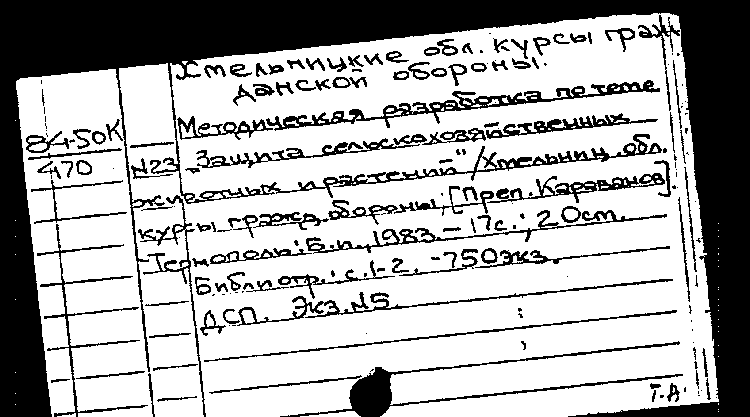 Хмельницкие обл. курсы граж
данской обороны.
Методическая разработка по теме
84-50К
470 N23 „Защита сельскохозяйственных
животных и растений" / Хмельниц. обл.
курсы гражд. обороны; [Преп. Караванов].
Тернополь: Б.и., 1983. - 17с.; 20см.
Библиогр.: с.1-2. - 750экз.
ДСП. Экз.N5.
Т.А.